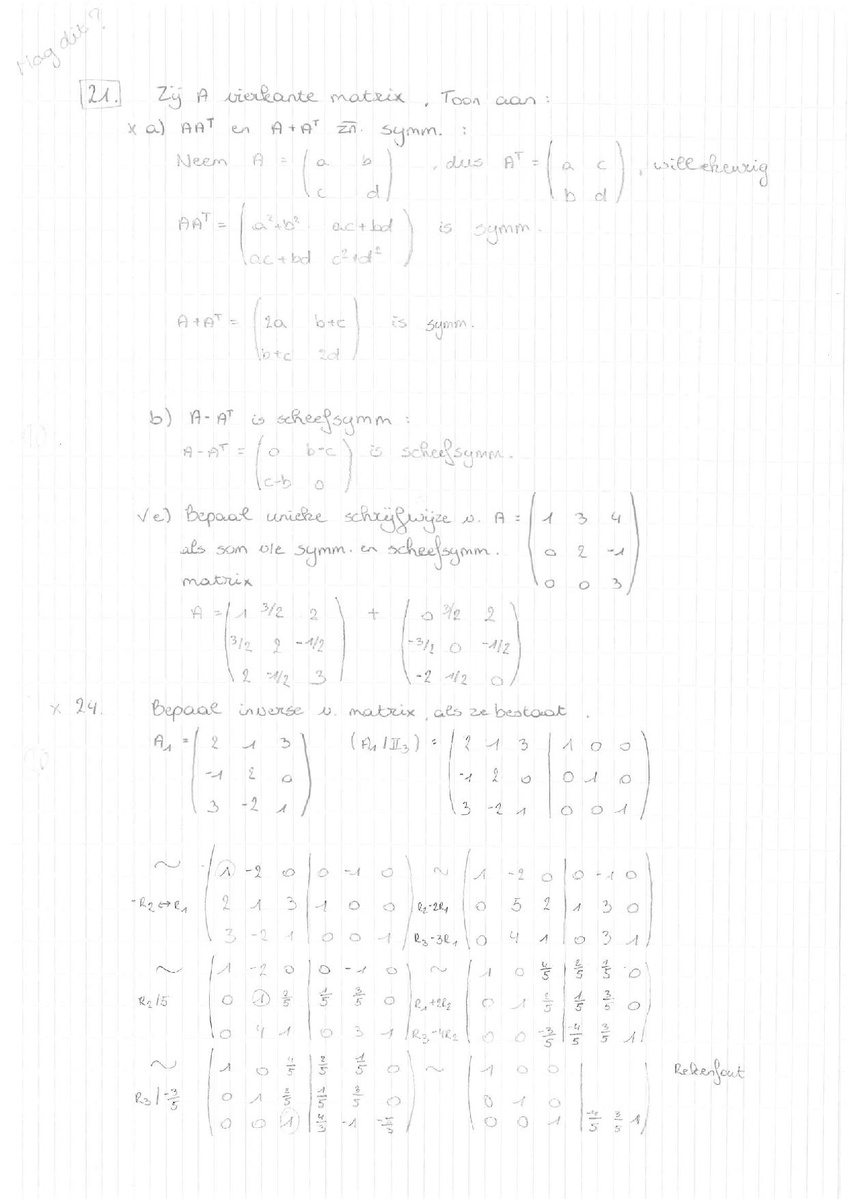 Mag dit?
21. Zij A vierkante matrix, Toon aan:
x a) AAᵀ en A+Aᵀ zn. symm. :
Neem A = (a b; c d), dus Aᵀ = (a c; b d), willekeurig
AAᵀ = (a²+b² ac+bd; ac+bd c²+d²) is symm.
A+Aᵀ = (2a b+c; b+c 2d) is symm.
b) A-Aᵀ is scheefsymm:
A-Aᵀ = (0 b-c; c-b 0) is scheefsymm.
√e) Bepaal unieke schrijfwijze v. A = (1 3 4; 0 2 -1; 0 0 3)
als som v/e symm. en scheefsymm.
matrix
A = (1 3/2 2; 3/2 2 -1/2; 2 -1/2 3) + (0 3/2 2; -3/2 0 -1/2; -2 1/2 0)
x 24. Bepaal inverse v. matrix, als ze bestaat.
A₁ = (2 1 3; -1 2 0; 3 -2 1) (A₁|I₃) = (2 1 3 | 1 0 0; -1 2 0 | 0 1 0; 3 -2 1 | 0 0 1)
~ -R₂↔R₁ (1 -2 0 | 0 -1 0; 2 1 3 | 1 0 0; 3 -2 1 | 0 0 1) ~ R₂-2R₁ R₃-3R₁ (1 -2 0 | 0 -1 0; 0 5 2 | 1 3 0; 0 4 1 | 0 3 1)
~ R₂/5 (1 -2 0 | 0 -1 0; 0 1 2/5 | 1/5 3/5 0; 0 4 1 | 0 3 1) ~ R₁+2R₂ R₃-4R₂ (1 0 | 0; 0 1 2/5 | 1/5 3/5 0; 0 0 -3/5 | -4/5 3/5 1)
~ R₃/-3/5 (1 0 | 0; 0 1 | 3/5 0; 0 0 1 | -1) ~ (1 0 0 | ; 0 1 0 | ; 0 0 1 | 3/5 1)
Rekenfout